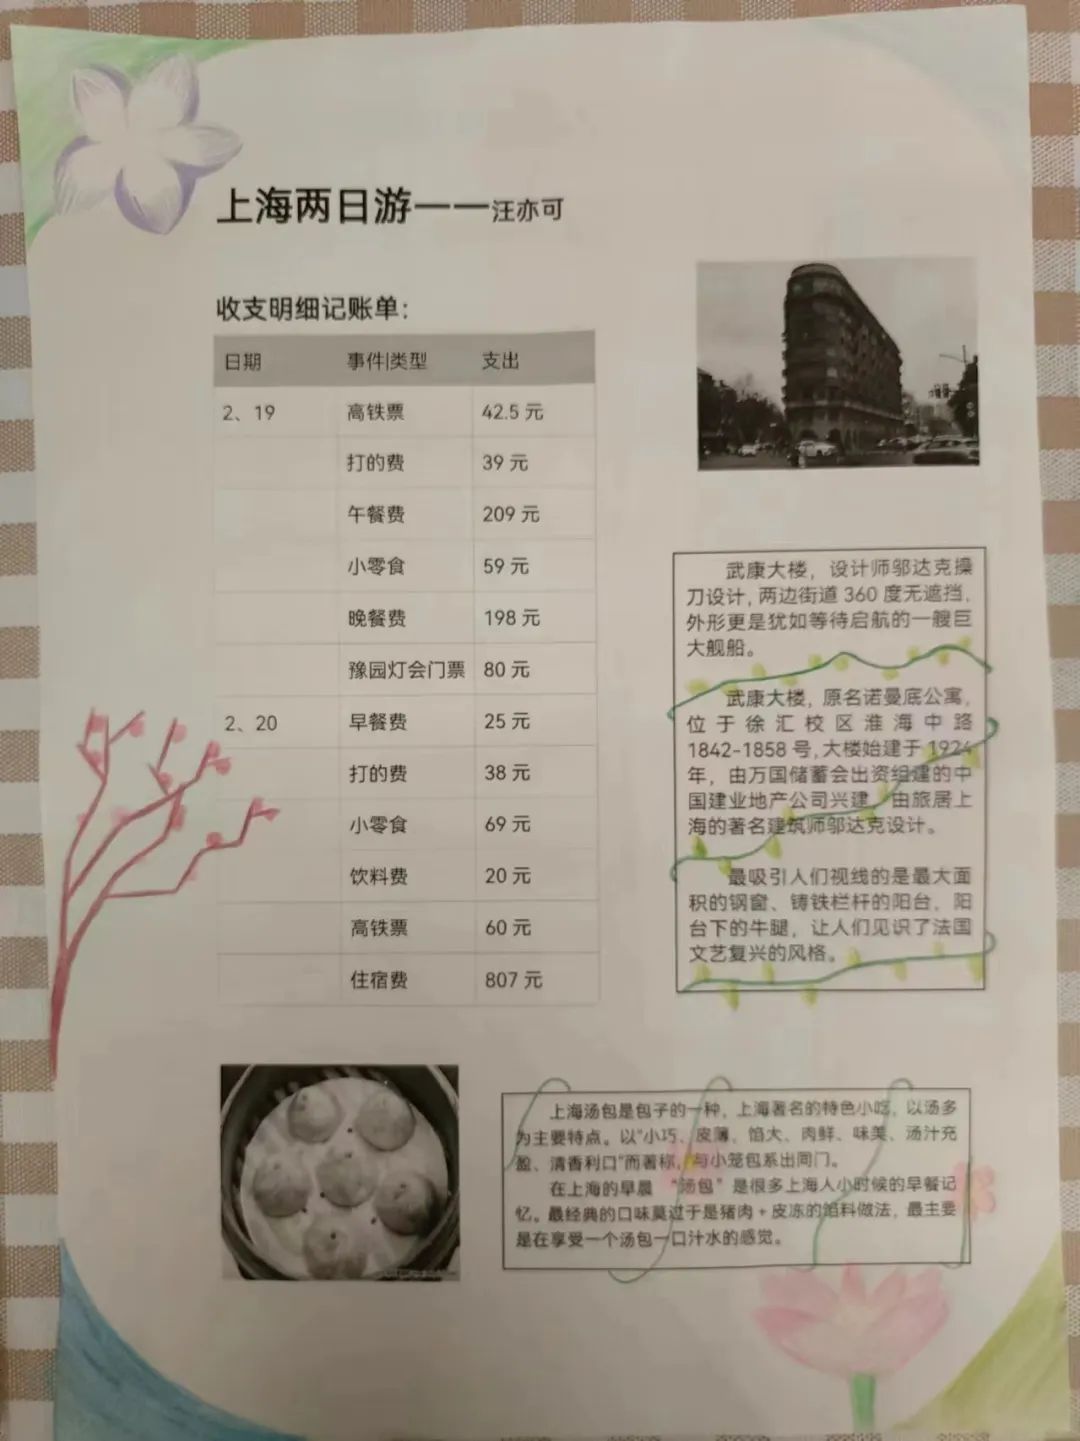 上海两日游——汪亦可
收支明细记账单：
日期 事件|类型 支出
2、19 高铁票 42.5 元
打的费 39 元
午餐费 209 元
小零食 59 元
晚餐费 198 元
豫园灯会门票 80 元
2、20 早餐费 25 元
打的费 38 元
小零食 69 元
饮料费 20 元
高铁票 60 元
住宿费 807 元
武康大楼，设计师邬达克操
刀设计，两边街道 360 度无遮挡，
外形更是犹如等待启航的一艘巨
大舰船。
武康大楼，原名诺曼底公寓，
位于徐汇校区淮海中路
1842-1858 号，大楼始建于 1924
年，由万国储蓄会出资组建的中
国建业地产公司兴建，由旅居上
海的著名建筑师邬达克设计。
最吸引人们视线的是最大面
积的钢窗、铸铁栏杆的阳台，阳
台下的牛腿，让人们见识了法国
文艺复兴的风格。
上海汤包是包子的一种，上海著名的特色小吃，以汤多
为主要特点。以“小巧、皮薄、馅大、肉鲜、味美、汤汁充
盈、清香利口”而著称，与小笼包系出同门。
在上海的早晨 “汤包”是很多上海人小时候的早餐记
忆。最经典的口味莫过于是猪肉+皮冻的馅料做法，最主要
是在享受一个汤包一口汁水的感觉。